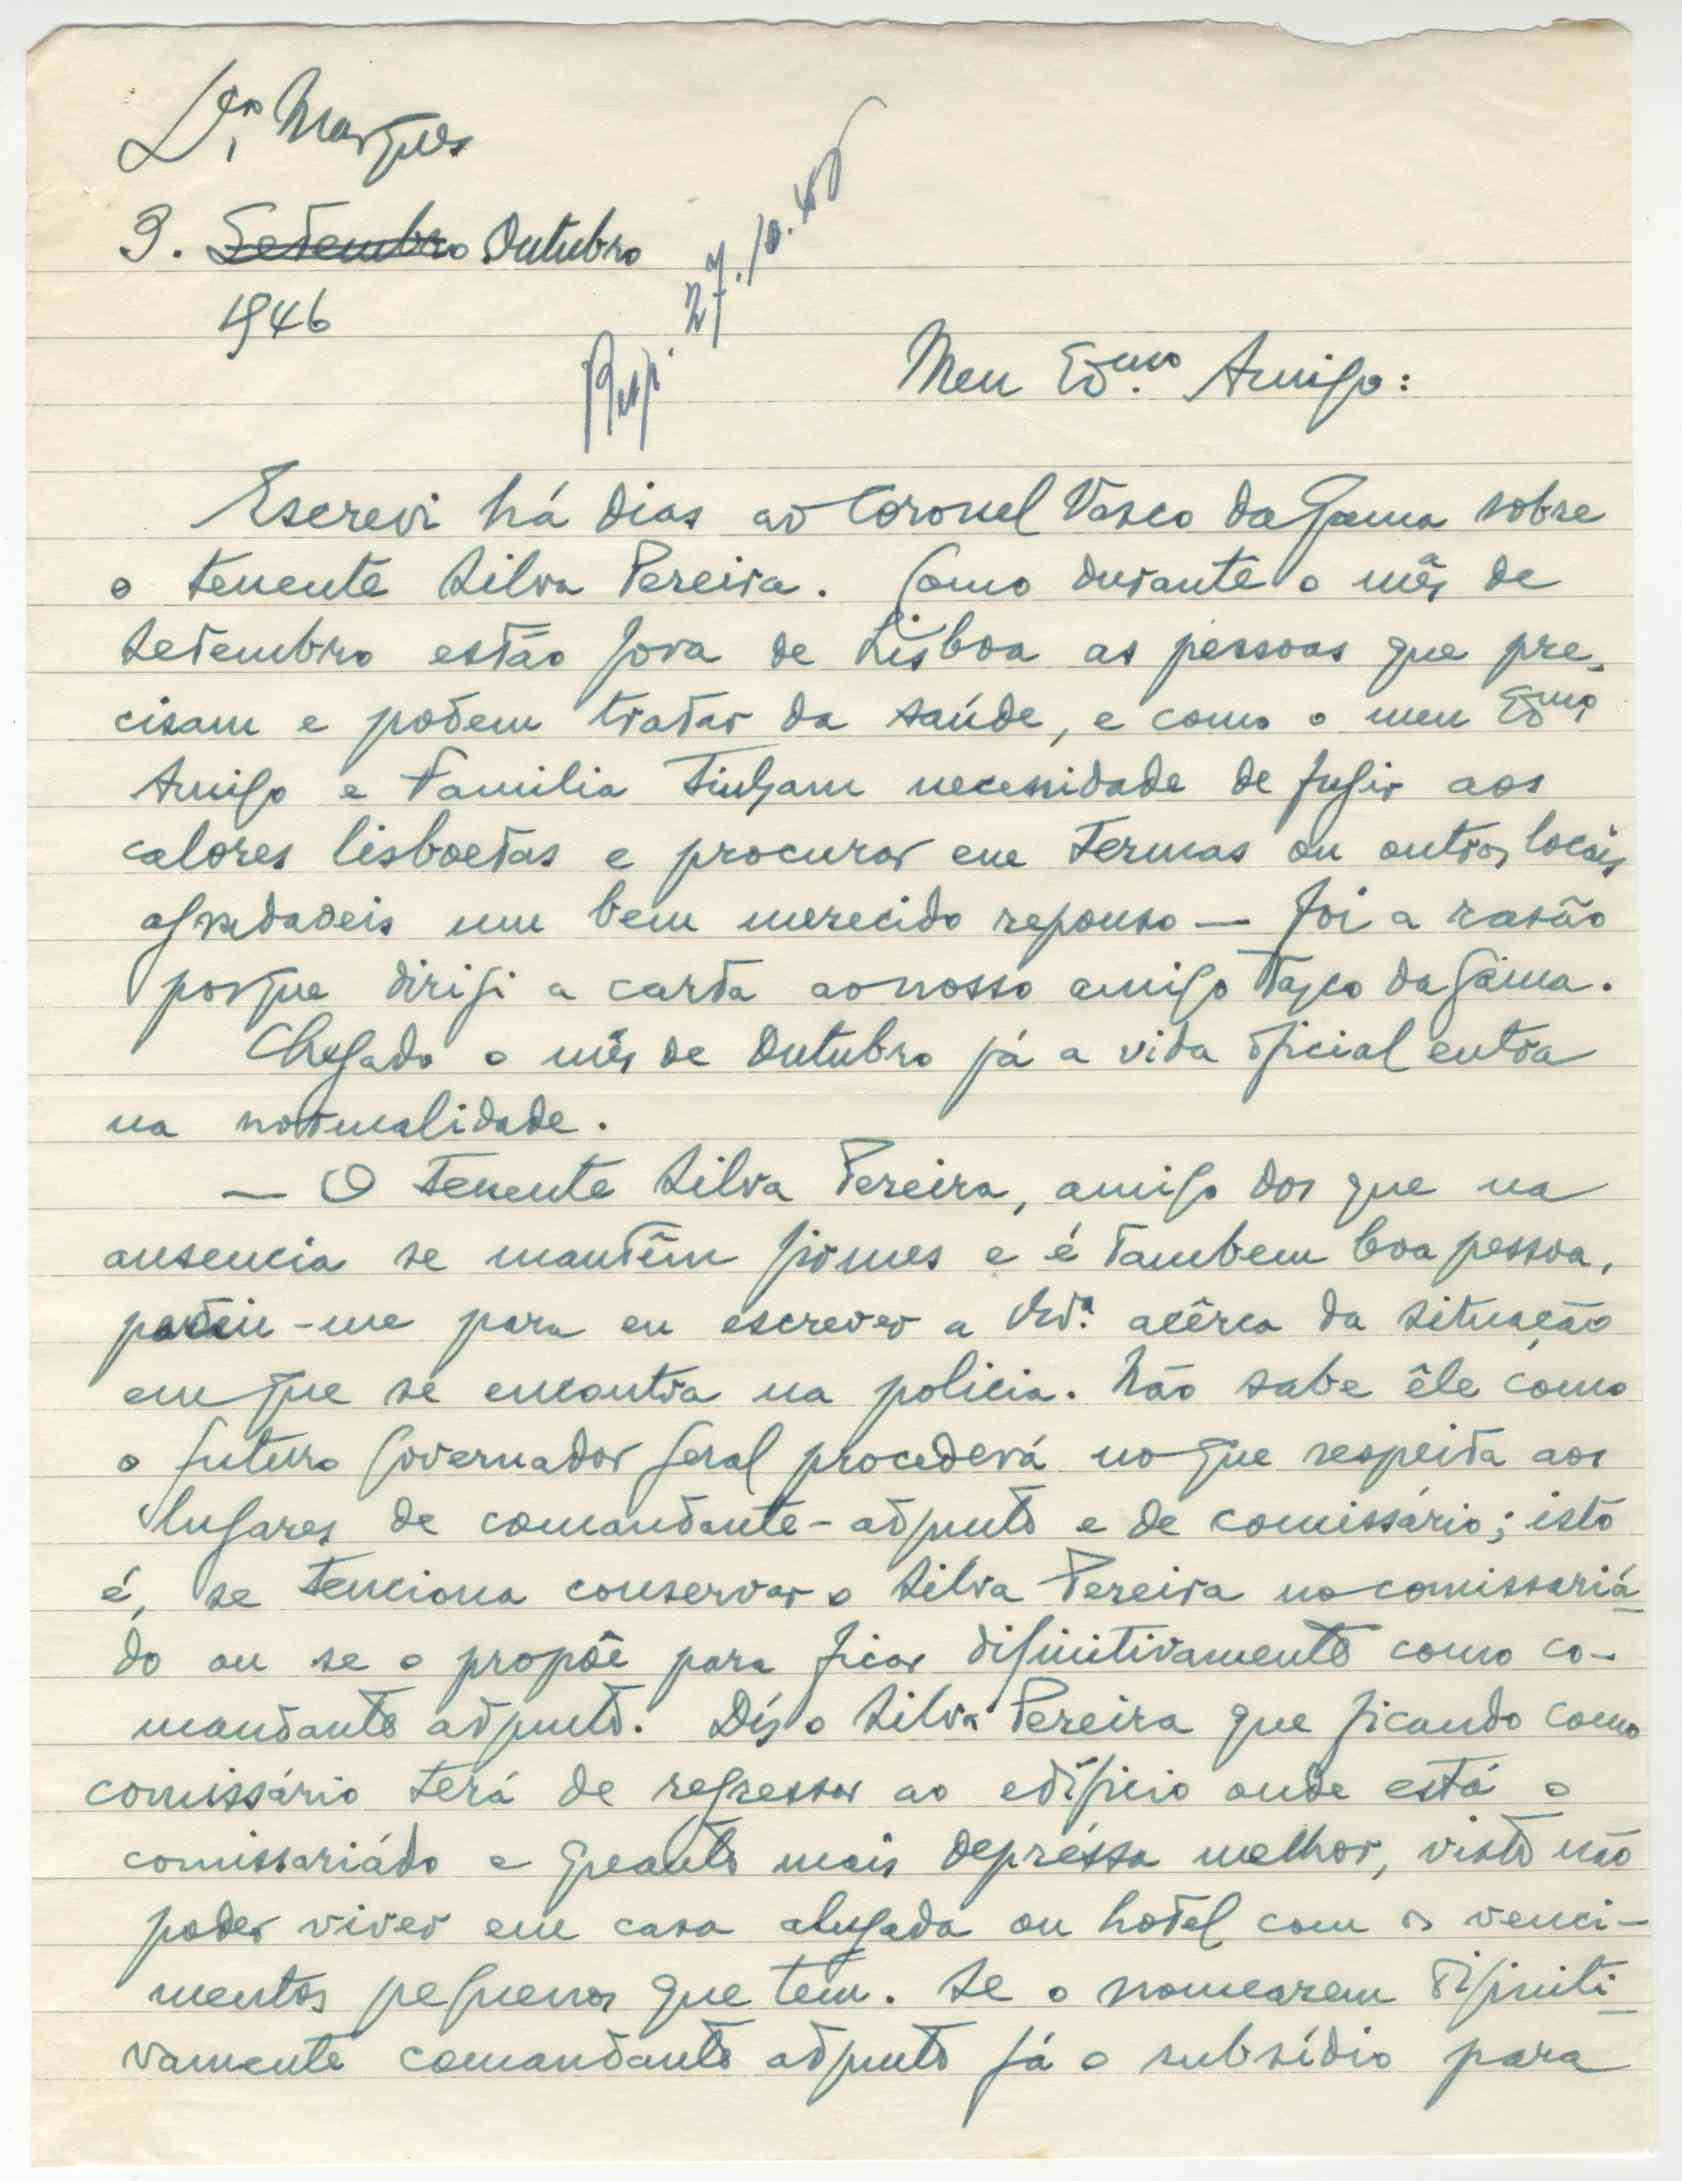 Marques
3. Setembro Outubro
1946
Resp. 27.10.46
Meu Exmo. Amigo:
Escrevi há dias ao Coronel Vasco da Gama sobre
o tenente Silva Pereira. Como durante o mês de
setembro estão fora de Lisboa as pessoas que pre-
cisam e podem tratar da saúde, e como o meu Exmo.
Amigo e Familia tinham necessidade de fugir aos
calores lisboetas e procurar em termas ou outros locais
agradaveis um bem merecido repouso — foi a rasão
porque dirigi a carta ao nosso amigo Vasco da Gama.
Chegado o mês de Outubro já a vida oficial entra
na normalidade.
— O tenente Silva Pereira, amigo dos que na
ausencia se mantêm firmes e é tambem boa pessoa,
pediu-me para eu escrever a acêrca da situação
em que se encontra na policia. Não sabe êle como
o futuro Governador Geral procederá no que respeita aos
lugares de comandante-adjunto e de comissário; isto
é, se tenciona conservar o Silva Pereira no comissariá-
do ou se o propõe para ficar difinitivamente como co-
mandante adjunto. Diz o Silva Pereira que ficando como
comissário terá de regressar ao edifício onde está o
comissariádo e quanto mais depréssa melhor, visto não
poder viver em casa alugada ou hotel com os venci-
mentos pequenos que tem. Se o nomearem difiniti-
vamente comandante adjunto já o subsídio para